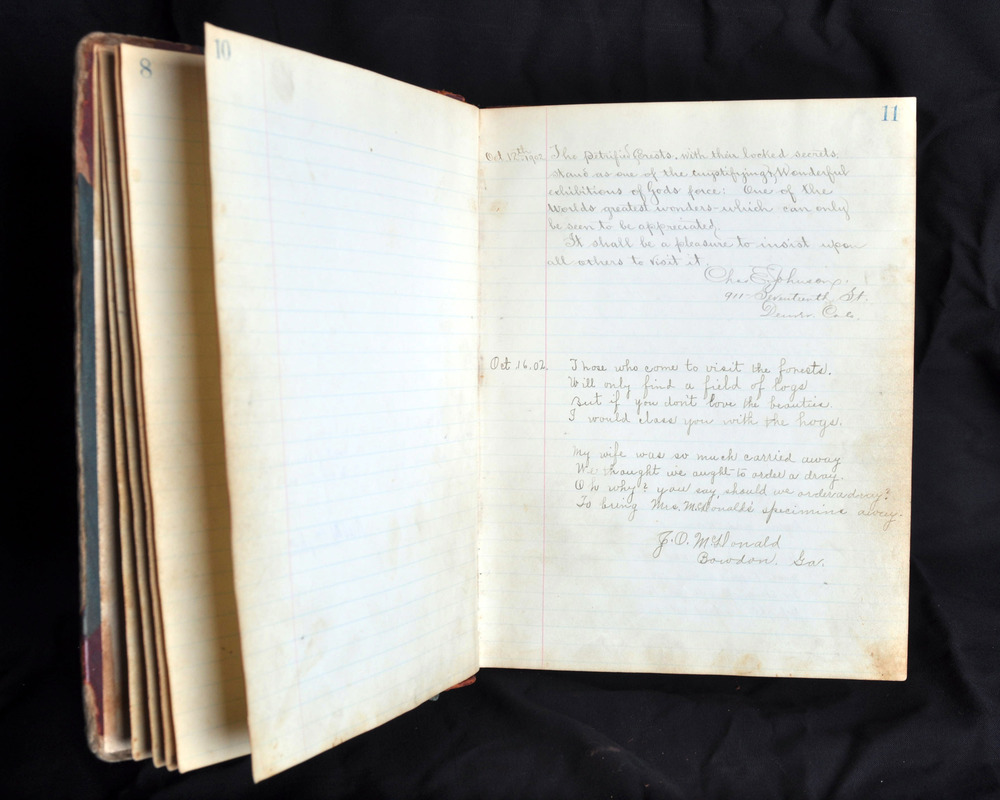 8
10
11
Oct 12th 1902 The petrified forests. with their locked secrets.
stand as one of the mystifying & Wonderful
exhibitions of Gods force: One of the
Worlds greatest wonders-which can only
be seen to be appreciated.
It shall be a pleasure to insist upon
all others to visit it.
Chas E. Johnson.
911 Seventeenth St.
Denver. Colo.
Oct. 16.02. Those who come to visit the forests.
Will only find a field of logs
But if you don't love the beauties.
I would class you with the hogs.
My wife was so much carried away
We thought we aught to order a dray.
Oh why? you say, should we order a dray?
To bring Mrs. McDonald's specimins away.
J. O. McDonald
Bowdon. Ga.